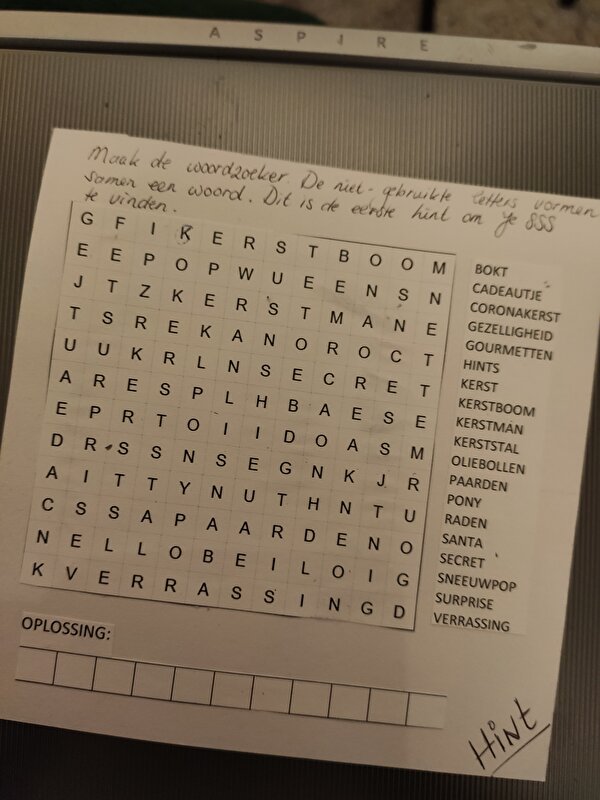 ASPIRE
Maak de woordzoeker. De niet-gebruikte letters vormen
samen een woord. Dit is de eerste hint om je SSS
te vinden.
G F I K E R S T B O O M
E E P O P W U E E N S N
J T Z K E R S T M A N E
T S R E K A N O R O C T
U U K R L N S E C R E T
A R E S P L H B A E S E
E P R T O I I D O A S M
D R S S N S E G N K J R
A I T T Y N U T H N T U
C S S A P A A R D E N O
N E L L O B E I L O I G
K V E R R A S S I N G D
BOKT
CADEAUTJE
CORONAKERST
GEZELLIGHEID
GOURMETTEN
HINTS
KERST
KERSTBOOM
KERSTMAN
KERSTSTAL
OLIEBOLLEN
PAARDEN
PONY
RADEN
SANTA
SECRET
SNEEUWPOP
SURPRISE
VERRASSING
OPLOSSING:
Hint